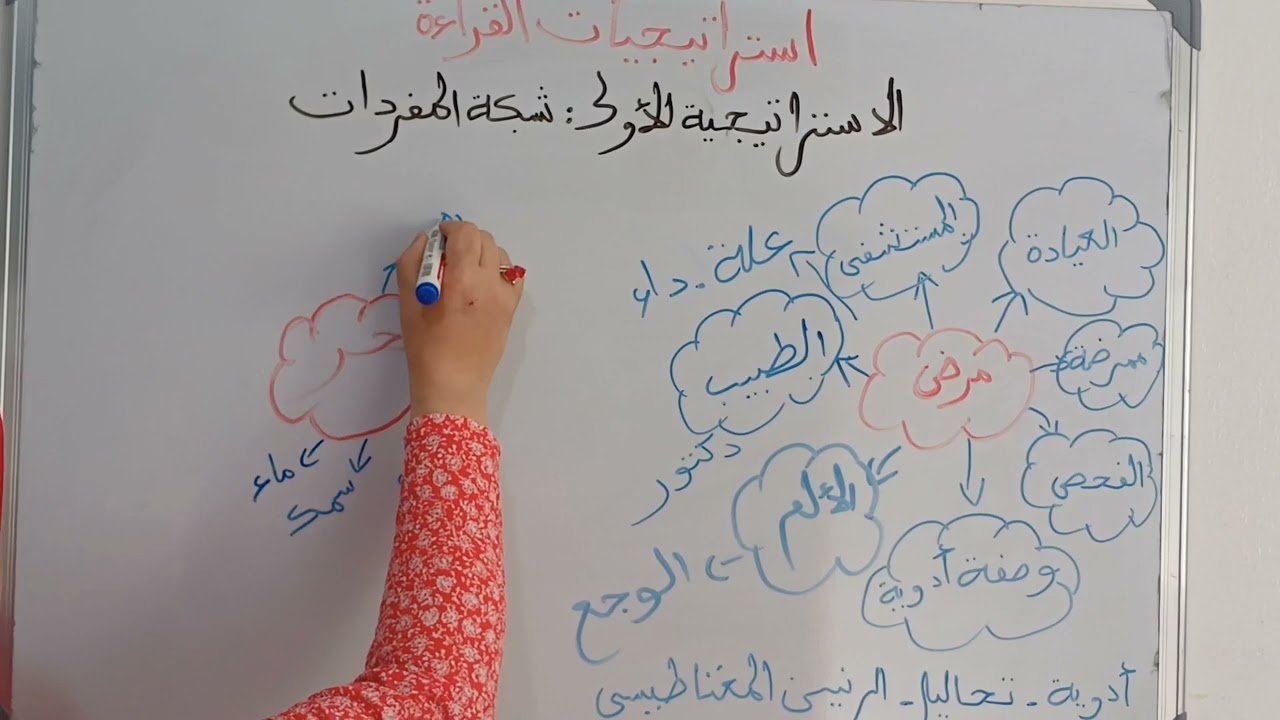 استراتيجيات القراءة
الاستراتيجية الأولى: شبكة المفردات
العيادة
المستشفى
علة - داء
ممرضة
مرض
الطبيب
دكتور
الفحص
الألم
الوجع
وصفة أدوية
أدوية - تحاليل - الرنين المغناطيسي
ماء
سمك